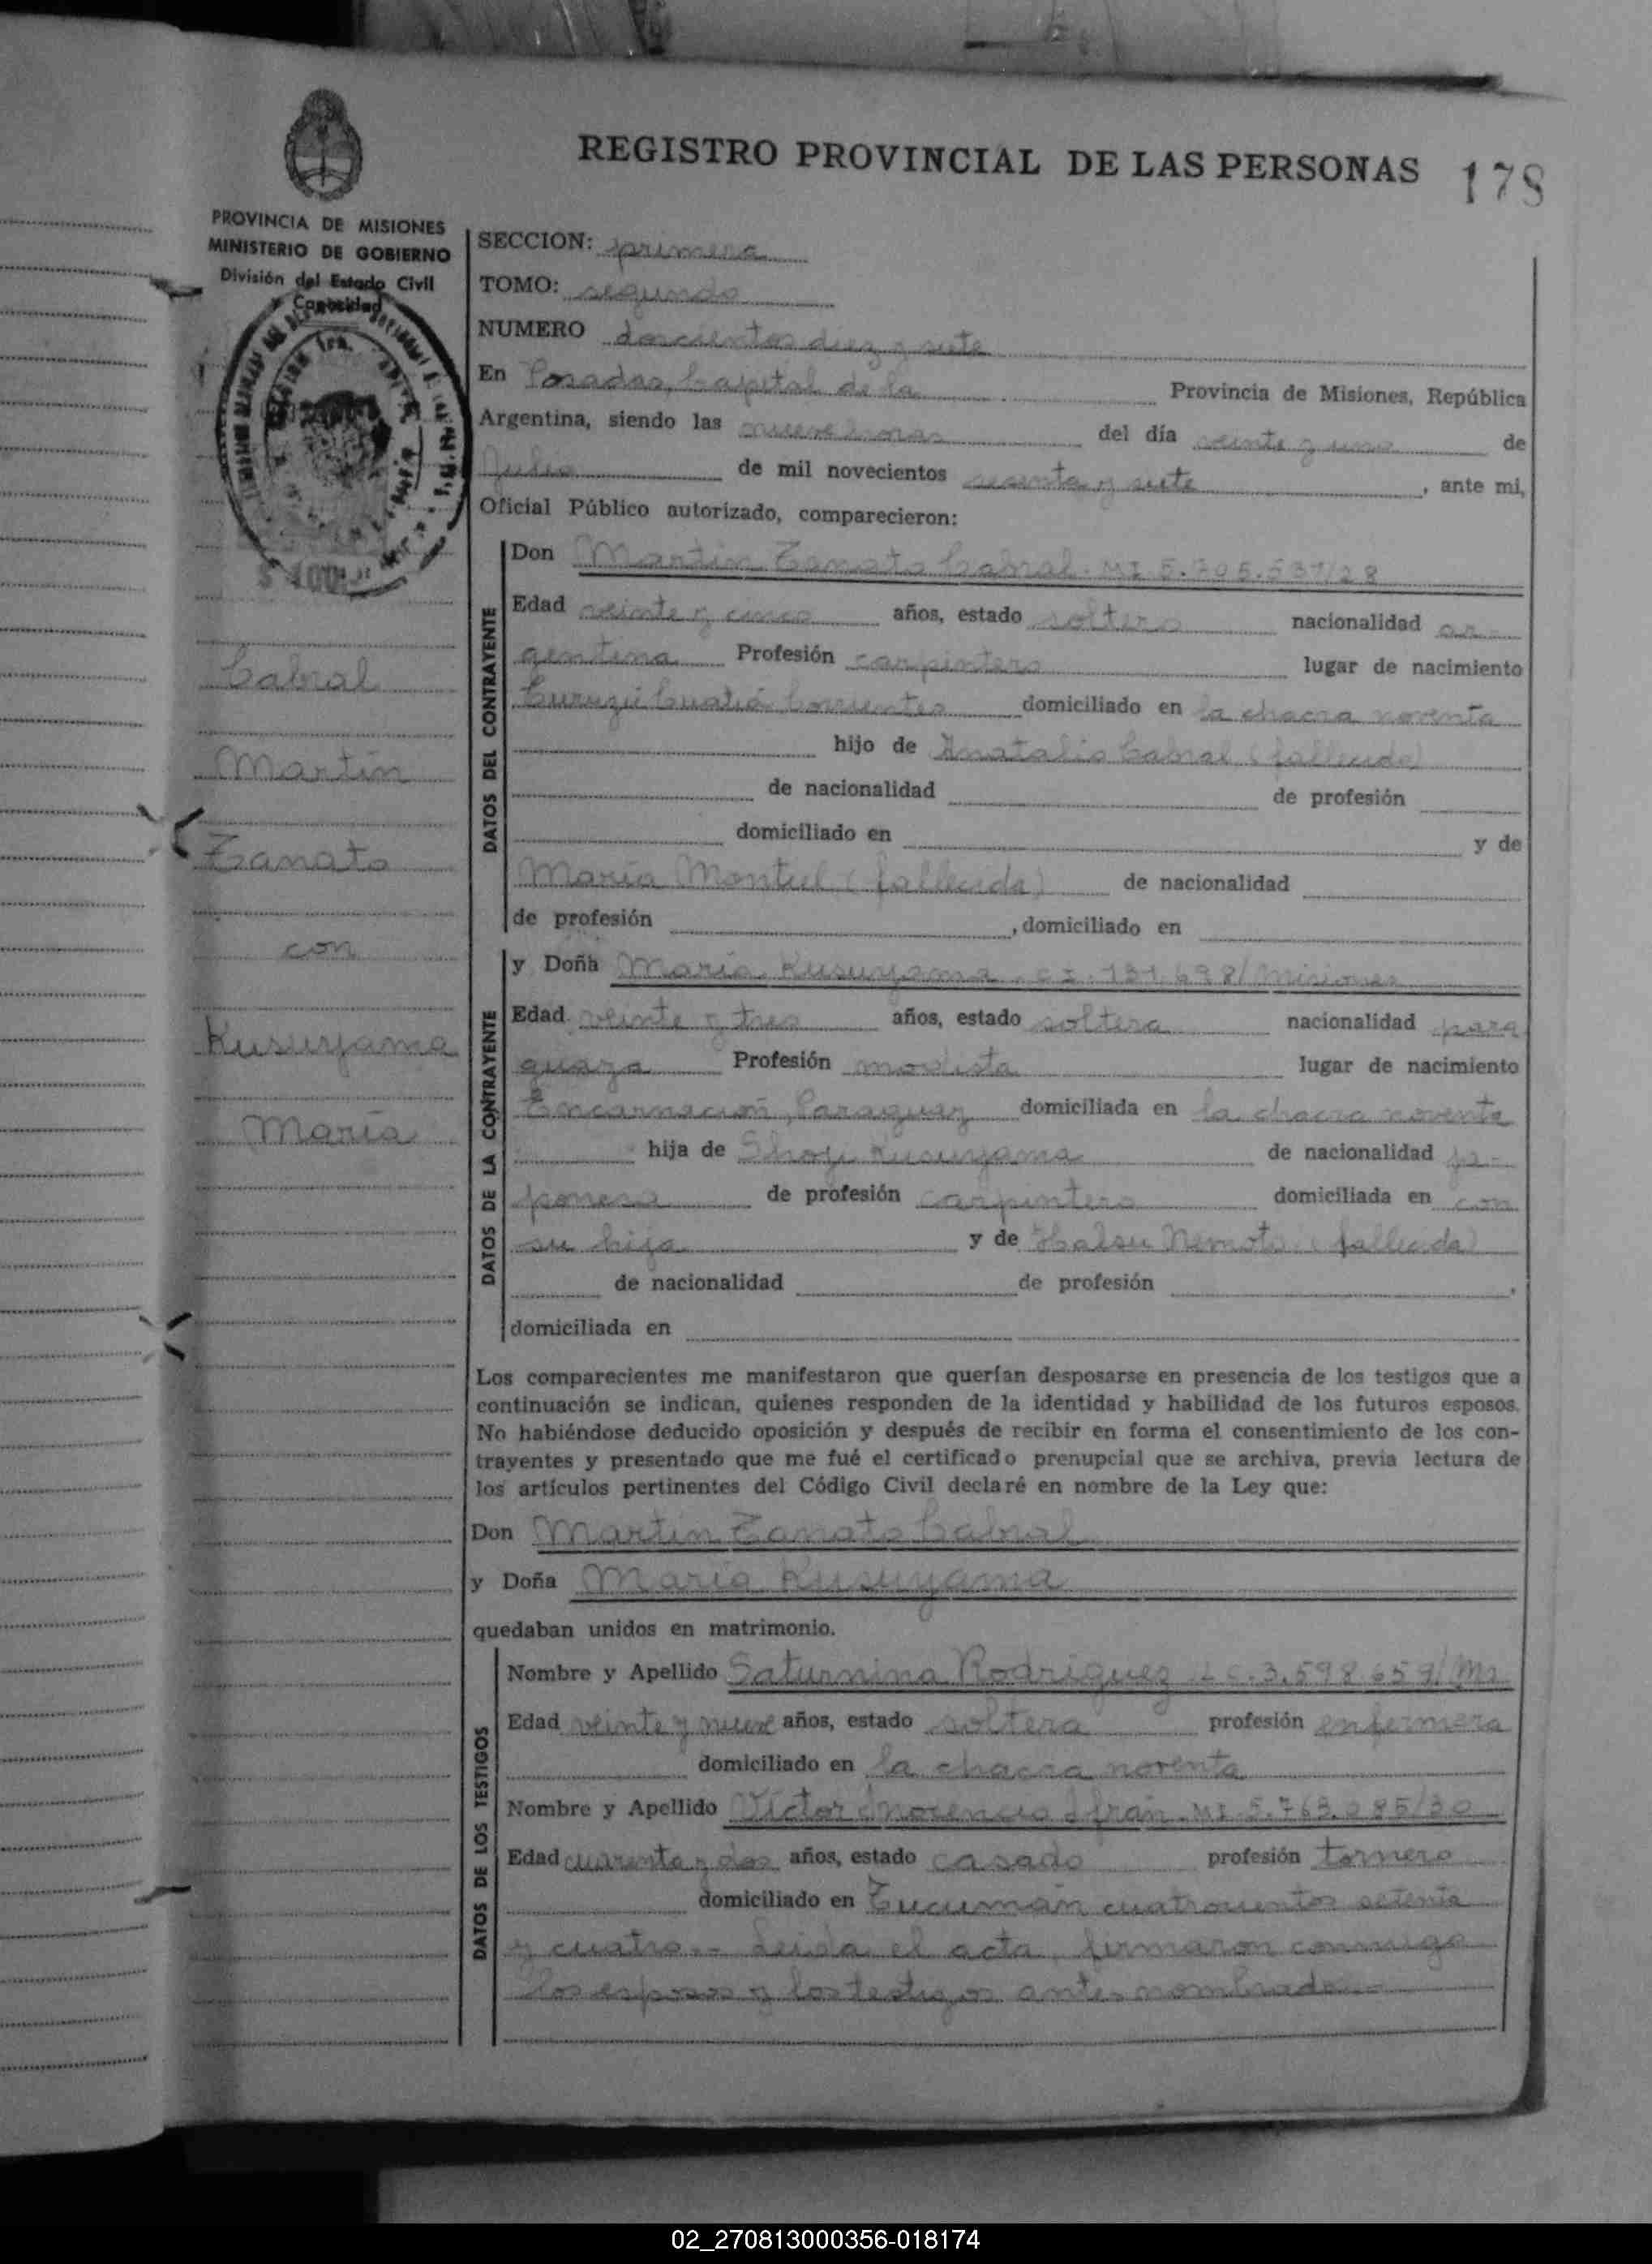 REGISTRO PROVINCIAL DE LAS PERSONAS 178
PROVINCIA DE MISIONES
MINISTERIO DE GOBIERNO
División del Estado Civil
Capacidad
$ 400
Cabral
Martin
Zanato
con
Kusuyama
Maria
SECCION: primera
TOMO: segundo
NUMERO doscientos diez y siete
En Posadas, Capital de la Provincia de Misiones, República
Argentina, siendo las nueve horas del día veinte y uno de
Julio de mil novecientos sesenta y siete, ante mi,
Oficial Público autorizado, comparecieron:
DATOS DEL CONTRAYENTE
Don Martin Zanato Cabral. MI 5.705.537/28
Edad veinte y cinco años, estado soltero nacionalidad ar-
gentina Profesión carpintero lugar de nacimiento
Curuzú Cuatiá Corrientes domiciliado en la chacra noventa
hijo de Anatalio Cabral (fallecido)
de nacionalidad de profesión
domiciliado en y de
Maria Montiel (fallecida) de nacionalidad
de profesión , domiciliado en
DATOS DE LA CONTRAYENTE
y Doña Maria Kusuyama. CI. 131.698/Misiones
Edad veinte y tres años, estado soltera nacionalidad para
guaya Profesión modista lugar de nacimiento
Encarnación, Paraguay domiciliada en la chacra noventa
hija de Shoji Kusuyama de nacionalidad ja-
ponesa de profesión carpintero domiciliada en con
su hija y de Nemoto (fallecida)
de nacionalidad de profesión ,
domiciliada en
Los comparecientes me manifestaron que querían desposarse en presencia de los testigos que a
continuación se indican, quienes responden de la identidad y habilidad de los futuros esposos.
No habiéndose deducido oposición y después de recibir en forma el consentimiento de los con-
trayentes y presentado que me fué el certificado prenupcial que se archiva, previa lectura de
los artículos pertinentes del Código Civil declaré en nombre de la Ley que:
Don Martin Zanato Cabral
y Doña Maria Kusuyama
quedaban unidos en matrimonio.
DATOS DE LOS TESTIGOS
Nombre y Apellido Saturnina Rodriguez L C. 3.598.659/Ms
Edad veinte y nueve años, estado soltera profesión enfermera
domiciliado en la chacra noventa
Nombre y Apellido Victor Ifran MI 5.763.285/30
Edad cuarenta y dos años, estado casado profesión tornero
domiciliado en Tucumán cuatrocientos setenta
y cuatro.- Leida el acta, firmaron conmigo
los esposos y los testigos antes nombrados.-
02_270813000356-018174